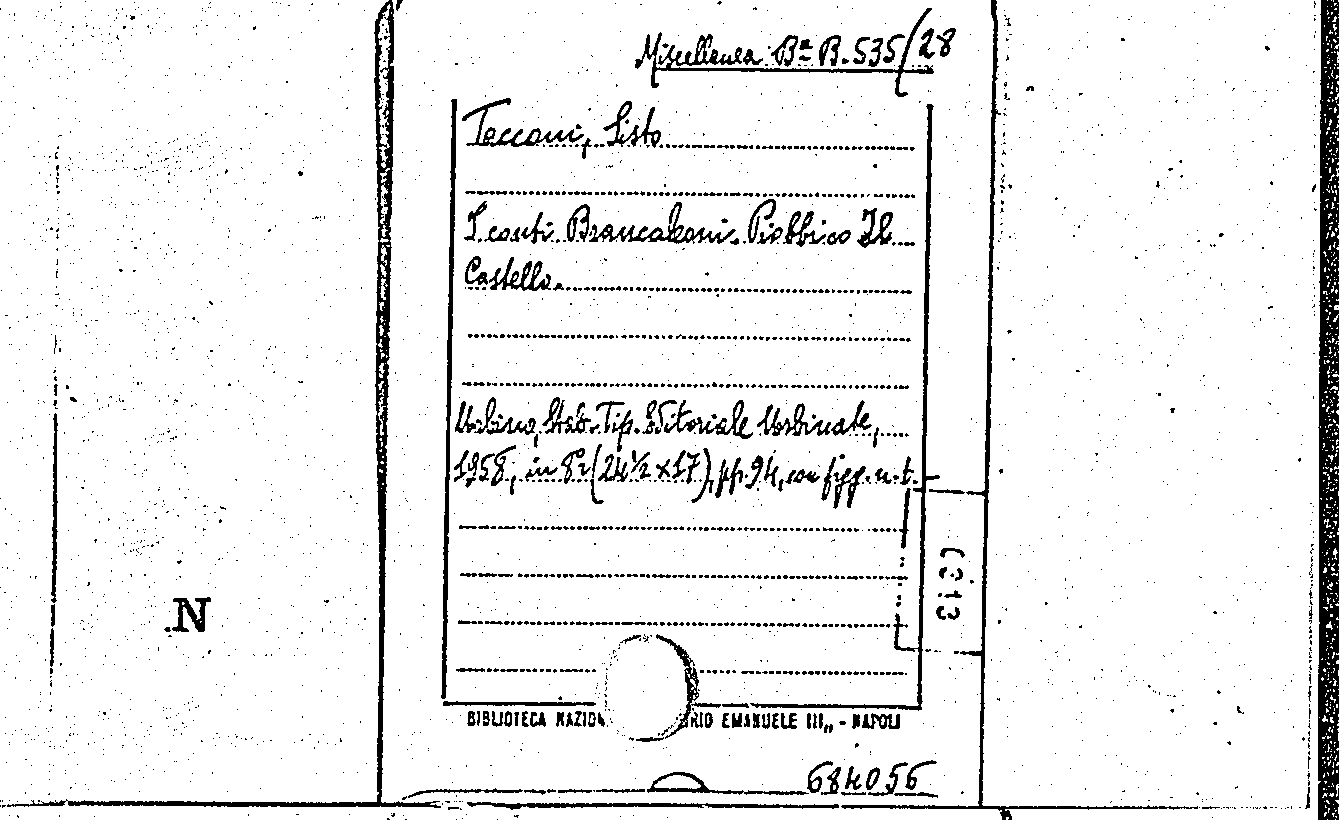 Miscellanea Bª B. 535/28
Tacconi, Sisto
I conti Brancaleoni. Piobbico Il
Castello.
Urbino, Stab. Tip. Editoriale Urbinate,
1958, in 8º (24½ x 17), pp. 94, con figg. n. t.
N
BIBLIOTECA NAZION RIO EMANUELE III„ - NAPOLI
684056